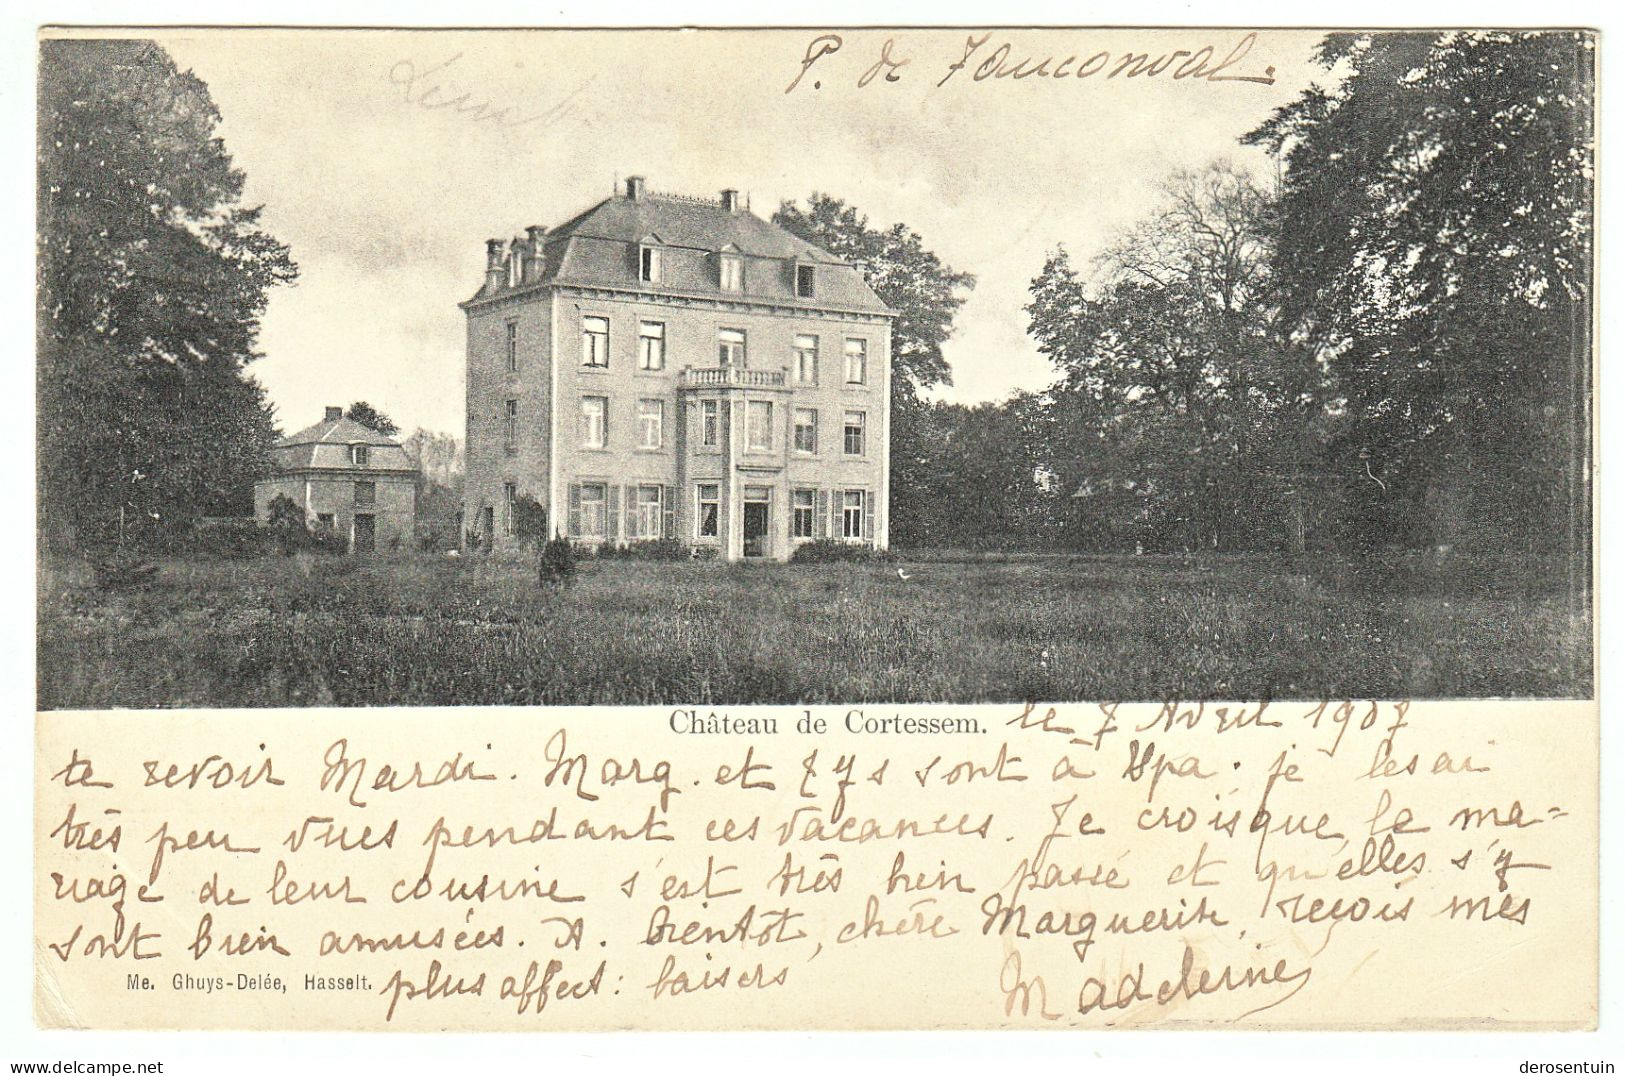 P. de Fauconval.
Limb
Château de Cortessem. le 7 Avril 1907
te revoir Mardi. Marg. et sont à Spa. je les ai
très peu vues pendant ces vacances. Je crois que le ma=
riage de leur cousine s'est très bien passé et qu'elles s'y
sont bien amusées. A bientôt, chère Marguerite, reçois mes
plus affect: baisers Madeleine
Me. Ghuys-Delée, Hasselt.
delcampe.net
derosentuin